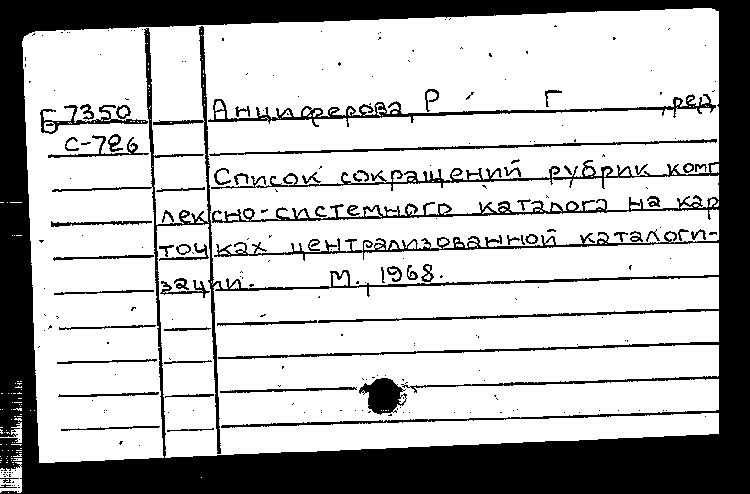 Б 7350 Анциферова, Р Г , ред
С-726
Список сокращений рубрик комп
лексно-системного каталога на кар
точках централизованной каталоги-
зации. М., 1968.